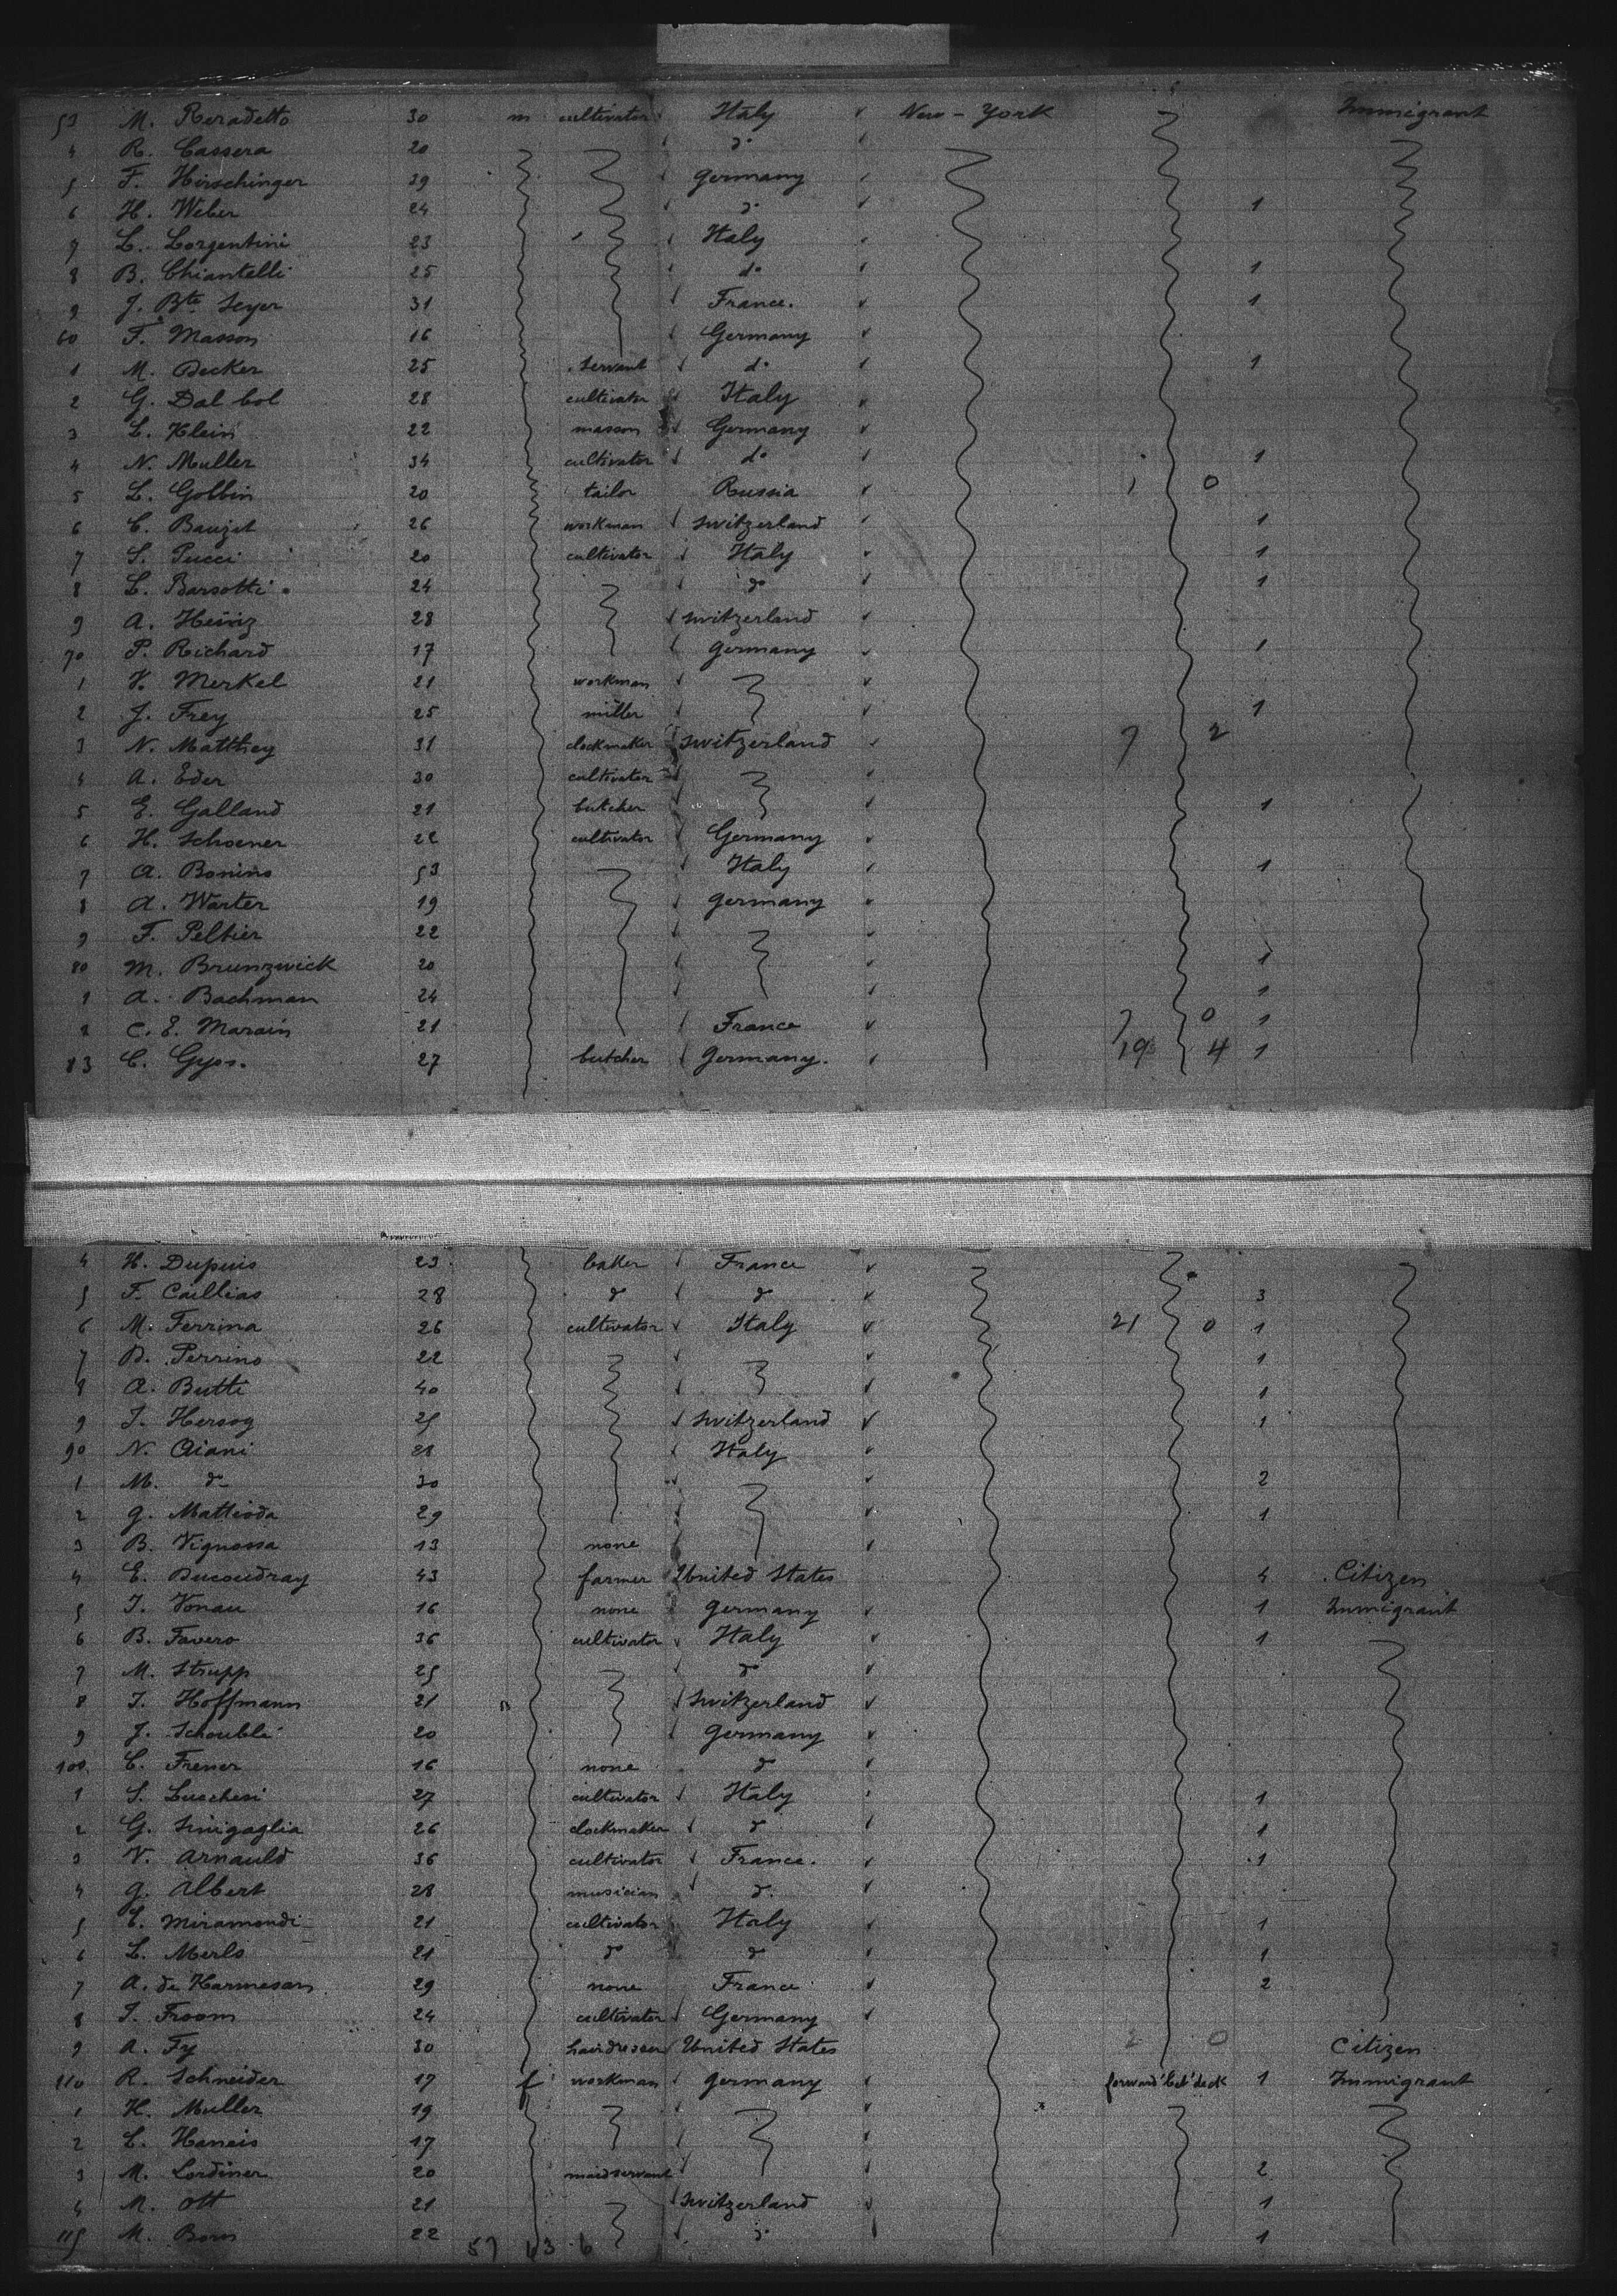 53 M. Reradetto 30 m cultivator Italy New-York Immigrant
4 R. Cassera 20 do
5 F. Hirschinger 39 Germany
6 H. Weber 24 do 1
7 L. Lorgentini 23 Italy
8 B. Chiantelli 25 do 1
9 J. Bte Seyer 31 France. 1
60 F. Masson 16 Germany
1 M. Decker 25 servant do 1
2 G. Dal bol 28 cultivator Italy
3 L. Klein 22 masson Germany
4 N. Muller 34 cultivator do 1
5 L. Golbin 20 tailor Russia 1 0
6 C. Bauzet 26 workman switzerland 1
7 S. Pucci 20 cultivator Italy 1
8 L. Barsotti 24 do 1
9 A. Heinz 28 switzerland
70 P. Richard 17 Germany 1
1 V. Merkel 21 workman
2 J. Frey 25 miller 1
3 N. Matthey 31 clockmaker switzerland 7 2
4 A. Eder 30 cultivator
5 E. Galland 21 butcher 1
6 H. Schoener 22 cultivator Germany
7 A. Bonino 53 Italy 1
8 A. Warter 19 Germany
9 F. Peltier 22
80 M. Brunzwick 20 1
1 A. Bachman 24 1
2 C. E. Marain 21 France 7 0 1
83 C. Gyss. 27 butcher Germany. 19 4 1
4 H. Dupuis 23 baker France
5 F. Caillias 28 do do 3
6 M. Ferrina 26 cultivator Italy 21 0 1
7 D. Perrino 22 1
8 A. Butti 40 1
9 J. Hersog 25 switzerland 1
90 N. Aiani 28 Italy
1 M. do 30 2
2 G. Mattioda 29 1
3 B. Vignossa 13 none
4 E. Ducoudray 43 farmer United States 4 Citizen
5 J. Vonau 16 none Germany 1 Immigrant
6 B. Favero 36 cultivator Italy 1
7 M. Strupp 25 do
8 J. Hoffmann 21 switzerland
9 J. Schoublé 20 Germany
100 C. Frener 16 none do
1 S. Luschesi 27 cultivator Italy 1
2 G. Sinigaglia 26 clockmaker do 1
3 V. Arnauld 36 cultivator France. 1
4 G. Albert 28 musician do
5 E. Miramondi 21 cultivator Italy 1
6 L. Merlo 21 do do 1
7 A. de Karmesan 29 none France 2
8 J. Froom 24 cultivator Germany
9 A. Fy 30 hairdresser United States 2 0 Citizen
110 R. Schneider 17 f workman Germany forward'bet'deck 1 Immigrant
1 H. Muller 19
2 L. Haneis 17
3 M. Lordiner 20 maidservant 2
4 M. Ott 21 switzerland 1
115 M. Born 22 do 1
57 63 6